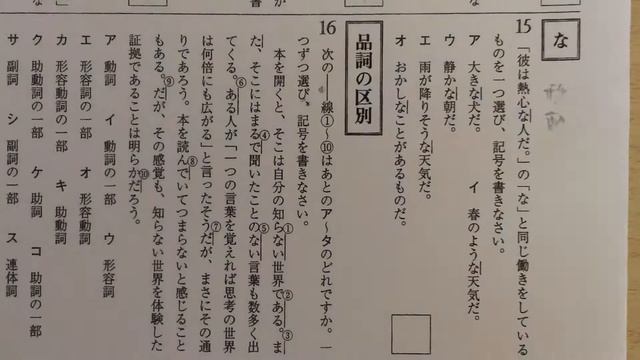 な
15 「彼は熱心な人だ。」の「な」と同じ働きをしている
ものを一つ選び、記号を書きなさい。
ア 大きな犬だ。 イ 春のような天気だ。
ウ 静かな朝だ。
エ 雨が降りそうな天気だ。
オ おかしなことがあるものだ。
品詞の区別
16 次の――線①～⑩はあとのア～タのどれですか。一
つずつ選び、記号を書きなさい。
本を開くと、そこは自分の知らない①世界で②ある。ま③
た、そこにはまるで④聞いたことのない⑤言葉も数多く出
てくる。ある⑥人が「一つの言葉を覚えれば思考の世界
は何倍にも広がる」と言ったそうだ⑦が、まさにその通
りであろう。本を読んで⑧いてつまらないと感じること
もある。だが⑨、その感覚も、知らない世界を体験した
証拠であることは明らかだ⑩ろう。
ア 動詞 イ 動詞の一部 ウ 形容詞
エ 形容詞の一部 オ 形容動詞
カ 形容動詞の一部 キ 助動詞
ク 助動詞の一部 ケ 助詞 コ 助詞の一部
サ 副詞 シ 副詞の一部 ス 連体詞